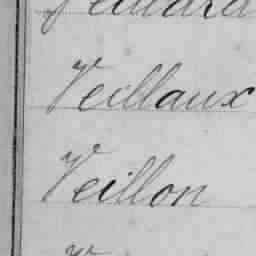 Veillaux
Veillon